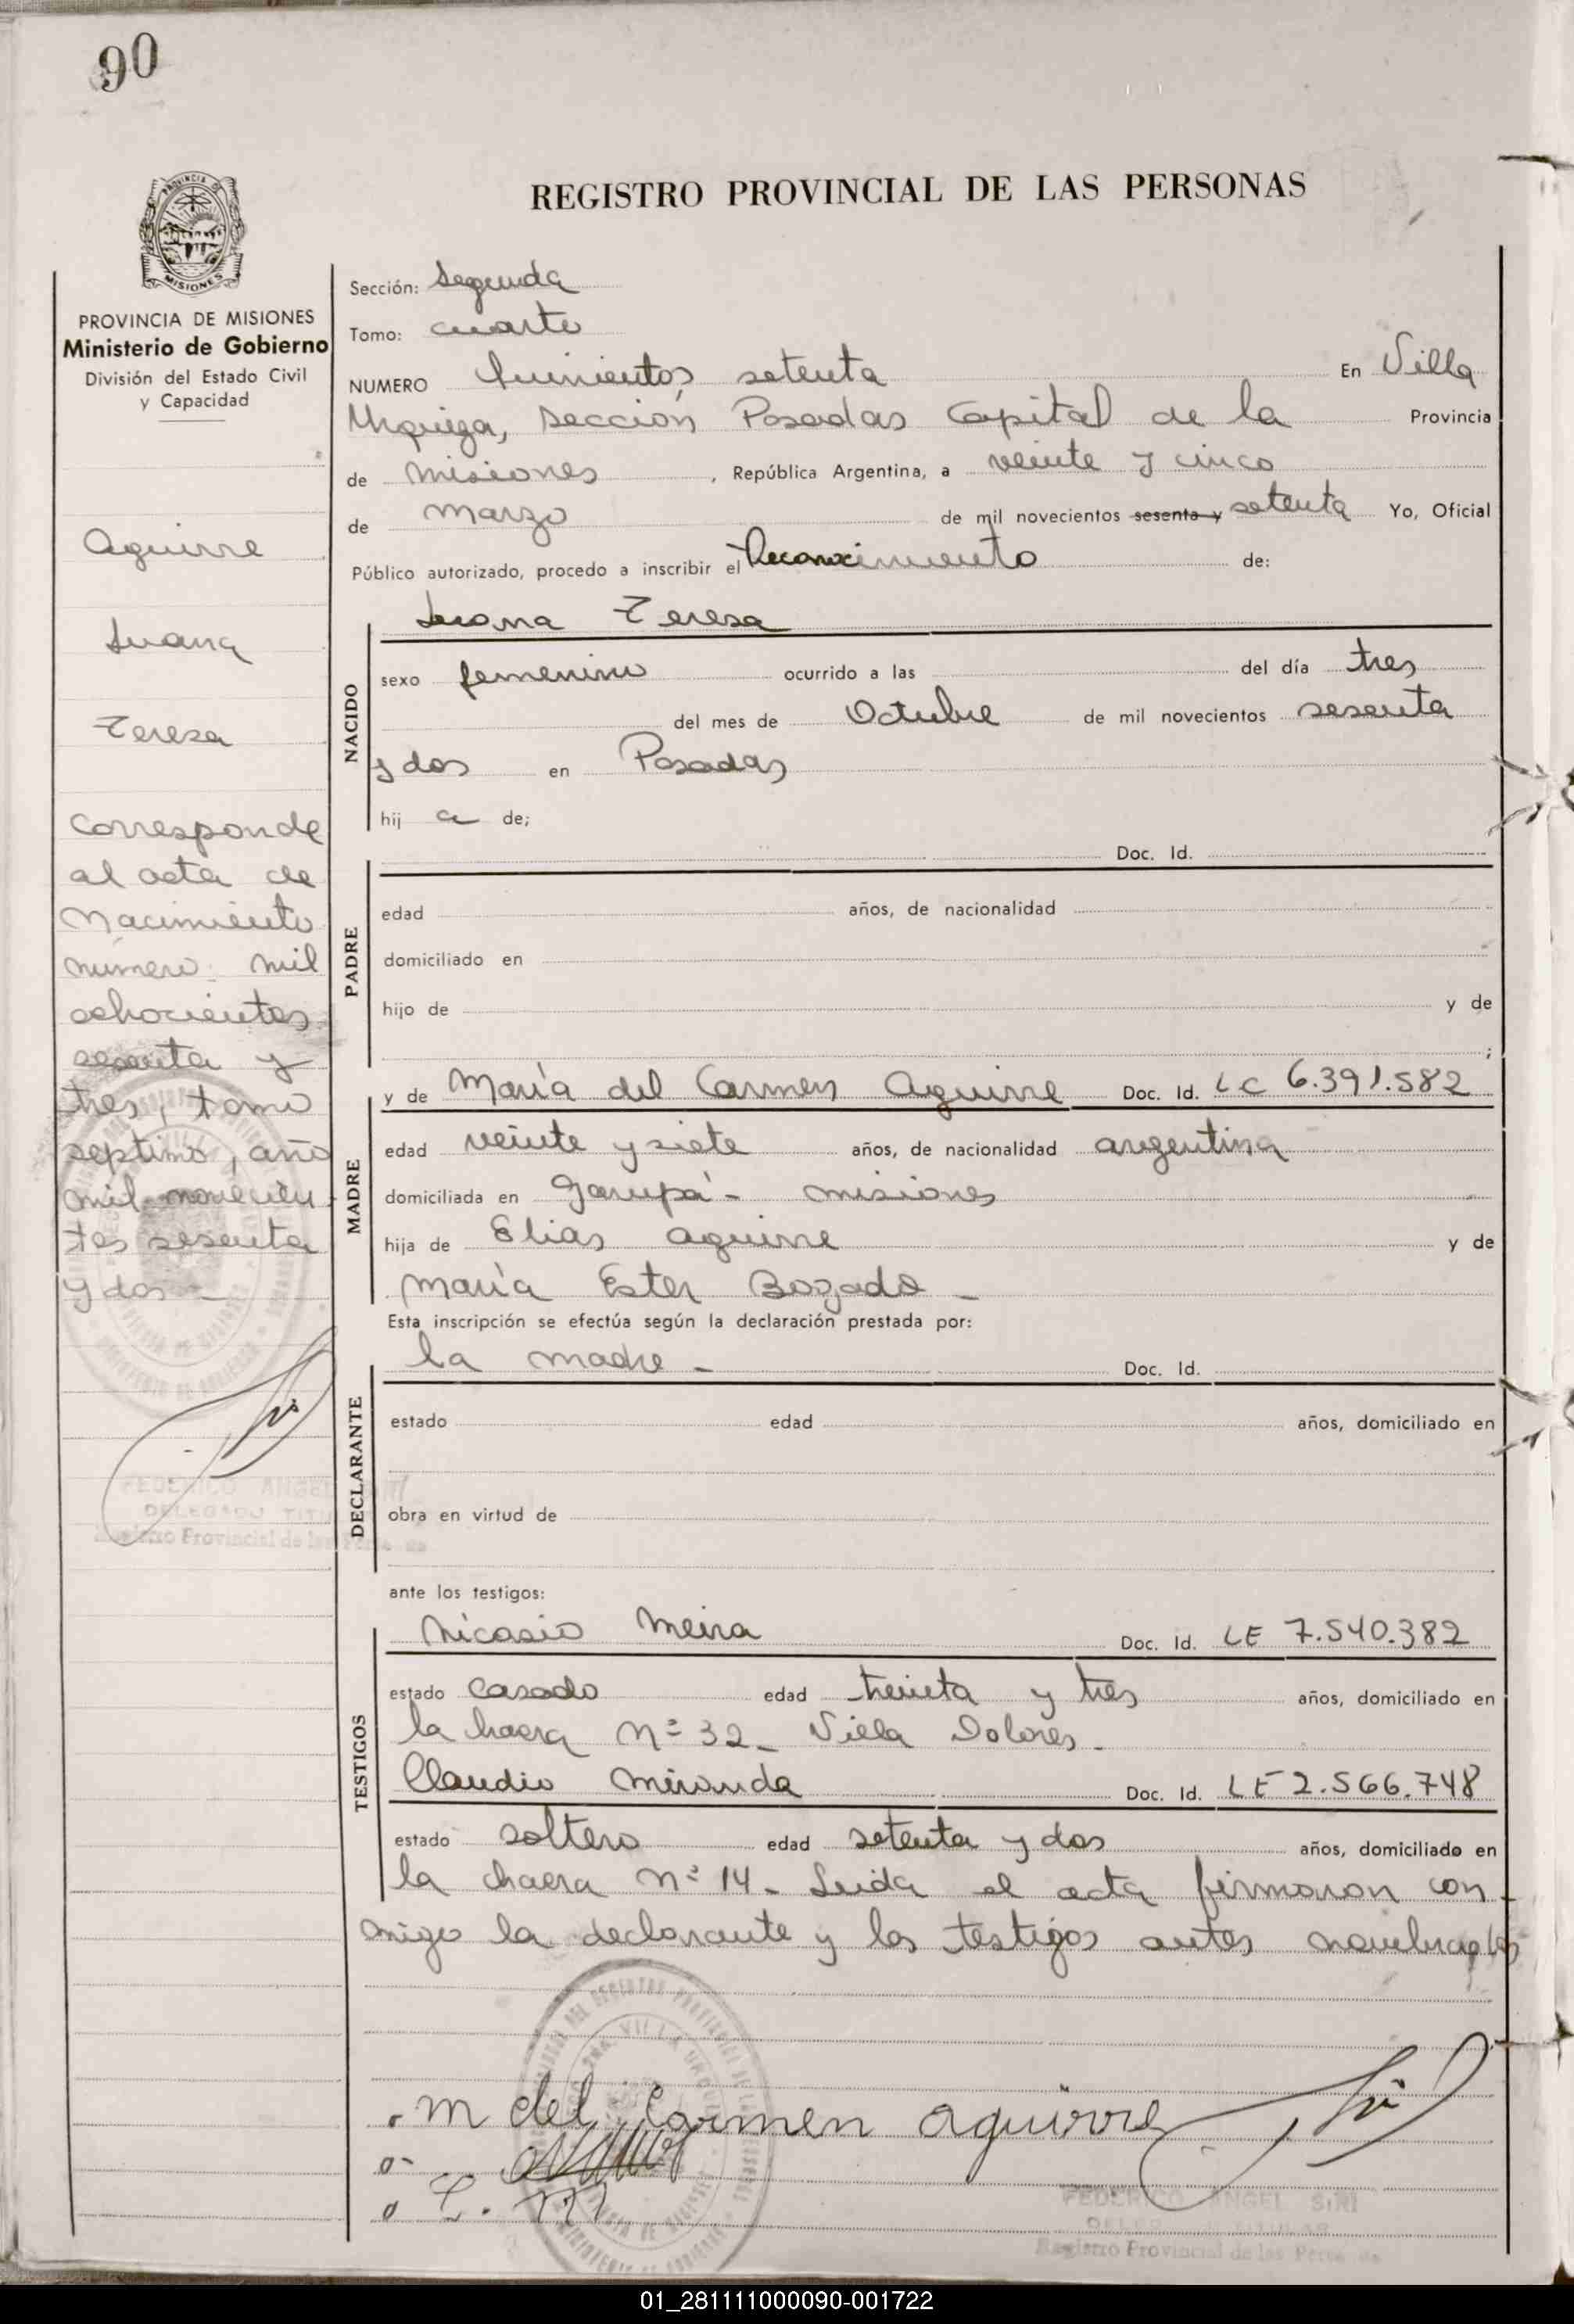 90
PROVINCIA DE
MISIONES
REGISTRO PROVINCIAL DE LAS PERSONAS
PROVINCIA DE MISIONES
Ministerio de Gobierno
División del Estado Civil
y Capacidad
Aguirre
Juana
Teresa
Corresponde
al acta de
Nacimiento
número mil
ochocientos
sesenta y
tres, tomo
septimo, año
mil novecien
tos sesenta
y dos -
FEDERICO ANGEL
DELEGADO TITU
Registro Provincial de las
Sección: Segunda
Tomo: cuarto
NUMERO Quinientos setenta En Villa
Urquiza, Sección Posadas Capital de la Provincia
de Misiones , República Argentina, a veinte y cinco
de Marzo de mil novecientos sesenta y setenta Yo, Oficial
Público autorizado, procedo a inscribir el Reconocimiento de:
NACIDO
Juana Teresa
sexo femenino ocurrido a las del día tres
del mes de Octubre de mil novecientos sesenta
y dos en Posadas
hij a de;
PADRE
Doc. Id.
edad años, de nacionalidad
domiciliado en
hijo de y de
;
MADRE
y de María del Carmen Aguirre Doc. Id. LC 6.391.582
edad veinte y siete años, de nacionalidad argentina
domiciliada en Garupá - Misiones
hija de Elias Aguirre y de
María Ester Bogado -
Esta inscripción se efectúa según la declaración prestada por:
DECLARANTE
la madre - Doc. Id.
estado edad años, domiciliado en
obra en virtud de
ante los testigos:
TESTIGOS
Nicasio Meira Doc. Id. LE 7.540.382
estado casado edad treinta y tres años, domiciliado en
la chacra Nº 32 - Villa Dolores -
Claudio Miranda Doc. Id. LE 2.566.748
estado soltero edad setenta y dos años, domiciliado en
la chacra nº 14 - Leida el acta firmaron con-
migo la declarante y los testigos antes nombrados
M del Carmen Aguirre
FEDERICO ANGEL SIRI
DELEGADO TITULAR
Registro Provincial de las Personas
01_281111000090-001722